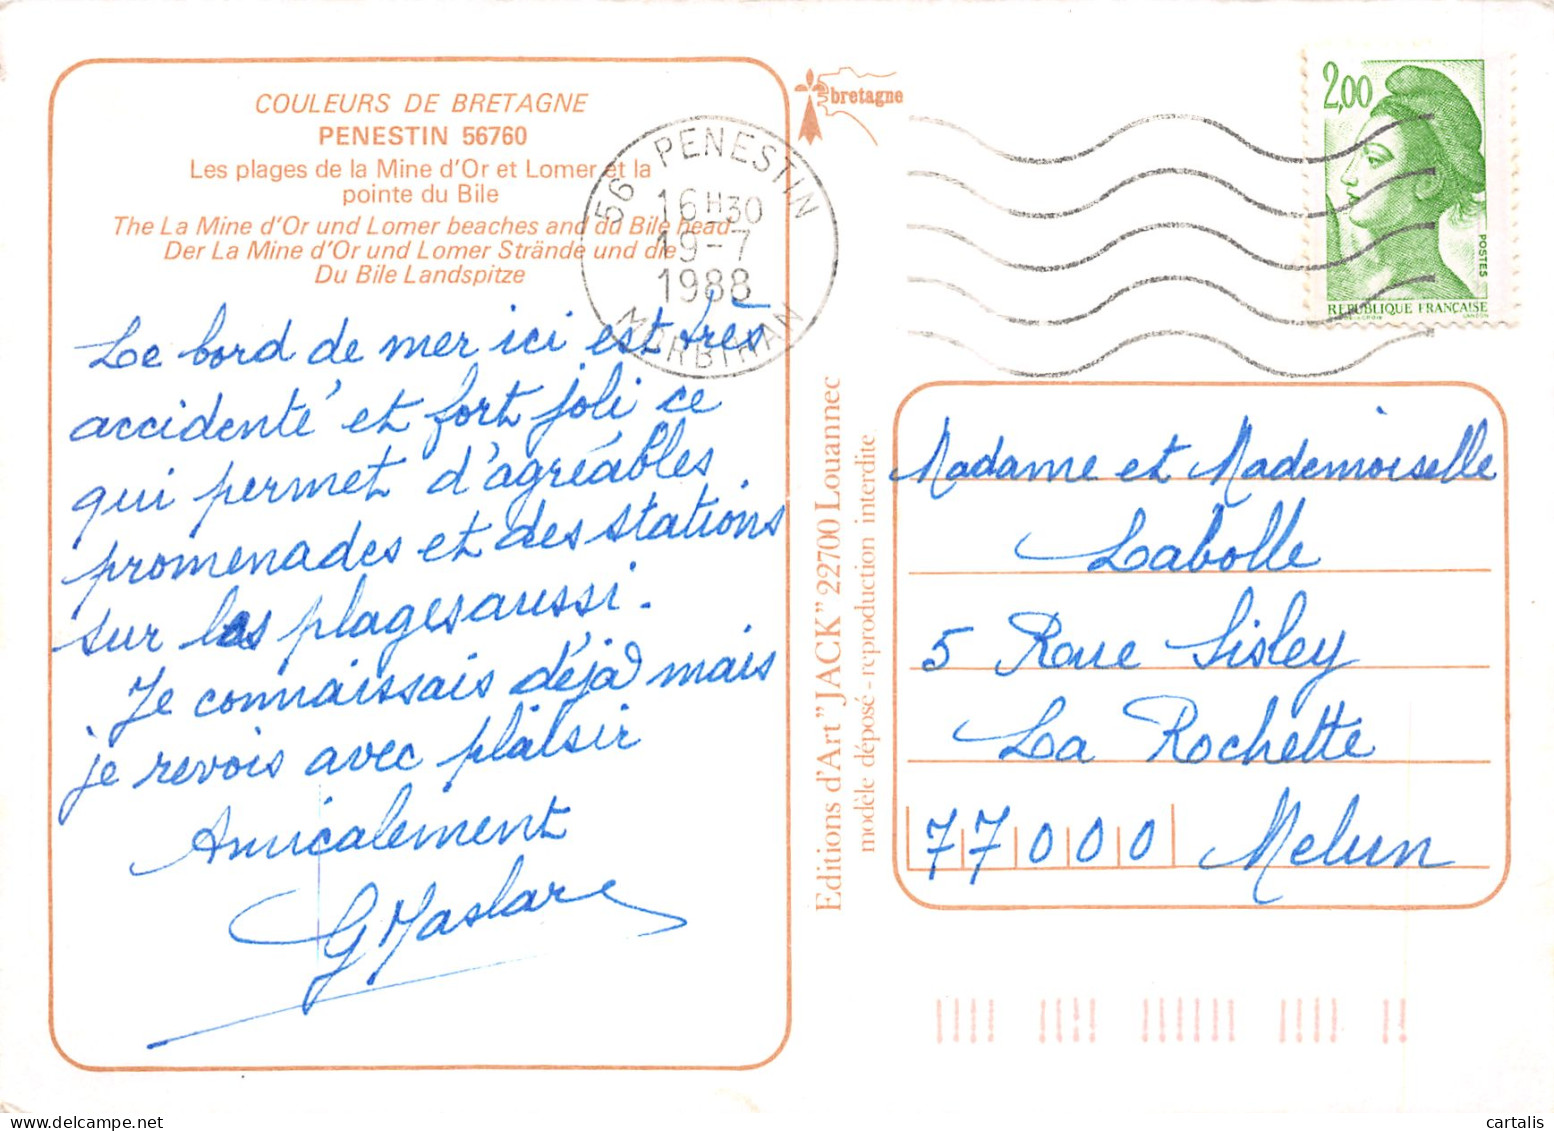 COULEURS DE BRETAGNE
PENESTIN 56760
Les plages de la Mine d'Or et Lomer et la
pointe du Bile
The La Mine d'Or und Lomer beaches and du Bile head
Der La Mine d'Or und Lomer Strände und die
Du Bile Landspitze
Le bord de mer ici est très
accidenté et fort joli ce
qui permet d'agréables
promenades et des stations
sur les plages aussi.
Je connaissais déjà mais
je revois avec plaisir
Amicalement
G Maslard
bretagne
56 PENESTIN
16 H30
19-7
1988
MORBIHAN
2,00
POSTES
REPUBLIQUE FRANÇAISE
Editions d'Art "JACK" 22700 Louannec
modèle déposé - reproduction interdite
Madame et Mademoiselle
Labolle
5 Roue Sisley
La Rochette
77000 Melun
cartalis